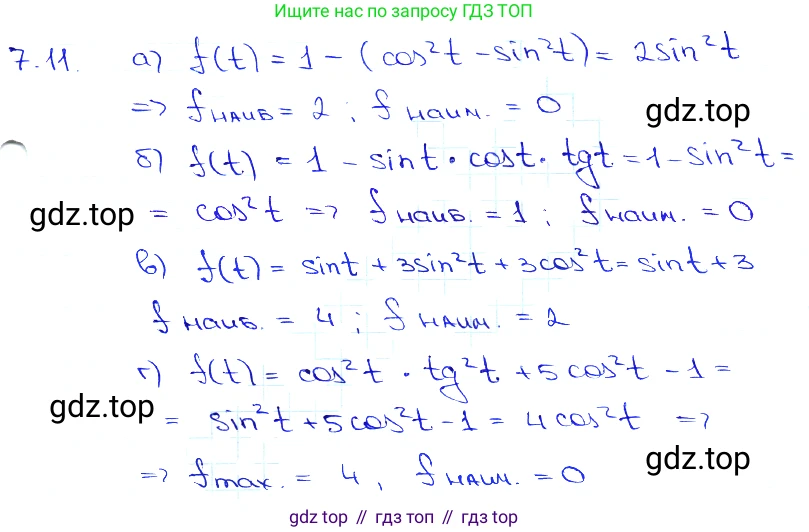 Ищите нас по запросу ГДЗ ТОП
7.11. а) f(t) = 1 - (cos²t - sin²t) = 2sin²t
=> f наиб = 2 ; f наим. = 0
gdz.top
б) f(t) = 1 - sint · cost · tgt = 1 - sin²t =
gdz.top
= cos²t => f наиб. = 1 ; f наим. = 0
в) f(t) = sint + 3sin²t + 3cos²t = sint + 3
f наиб. = 4 ; f наим. = 2
г) f(t) = cos²t · tg²t + 5cos²t - 1 =
gdz.top
= sin²t + 5cos²t - 1 = 4cos²t =>
=> f max. = 4, f наим. = 0
gdz.top
gdz top // гдз топ // gdz top